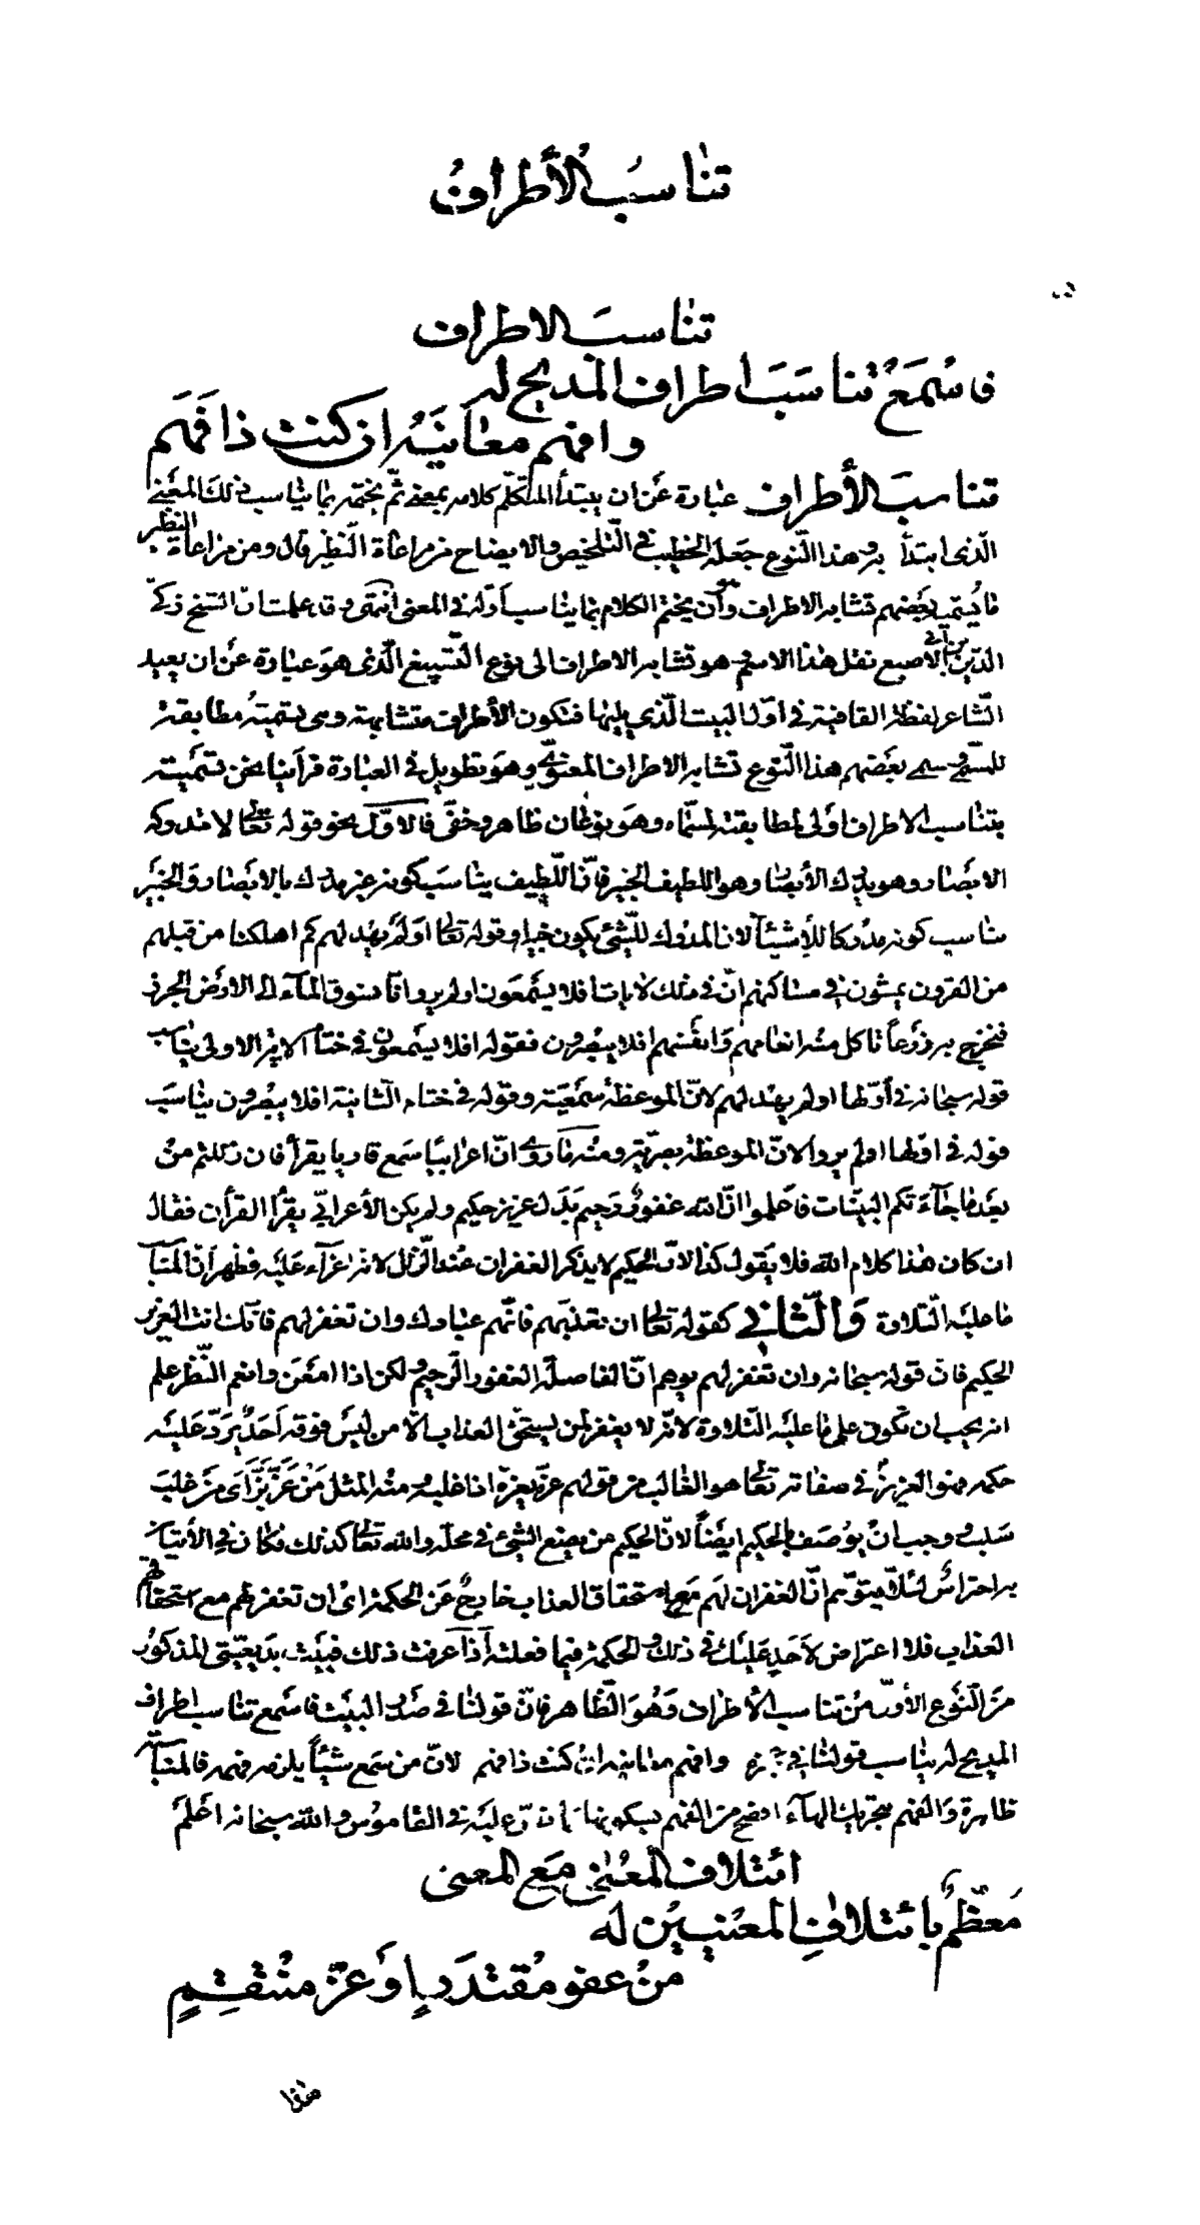 تناسب الأطراف
تناسب الاطراف
فاسمع تناسب اطراف المديح له
وافهم معانيه ان كنت ذا فهم
تناسب الأطراف عبارة عن ان يبتدأ المتكلم كلامه بمعنى ثم يختمه بما يناسب ذلك المعنى
الذى ابتدأ به وهذا النوع جعله الخطيب فى التلخيص والايضاح من مراعاة النظير قال ومن مراعاة النظير
ما يسميه بعضهم تشابه الاطراف وهو أن يختم الكلام بما يناسب اوله فى المعنى انتهى وقد علمت ان الشيخ زكى
الدين بن أبى الاصبع نقل هذا الاسم وهو تشابه الاطراف الى نوع التسبيغ الذى هو عبارة عن ان يعيد
الشاعر لفظة القافية فى اول البيت الذى يليها فتكون الأطراف متشابهة وهى تسمية مطابقة
للمسمى وسمى بعضهم هذا النوع تشابه الاطراف المعنوى وهو تطويل فى العبارة فرأينا نحن تسميته
بتناسب الاطراف اولى لمطابقته لمسماه وهو نوعان ظاهر وخفى فالاول نحو قوله تعالى لا تدركه
الابصار وهو يدرك الأبصار وهو اللطيف الخبير فان اللطيف يناسب كونه غير مدرك بالابصار والخبير
يناسب كونه مدركا للأشياء لان المدرك للشئ يكون خبيرا وقوله تعالى اولم يهد لهم كم اهلكنا من قبلهم
من القرون يمشون فى مساكنهم ان فى ذلك لايات افلا يسمعون اولم يروا انا نسوق الماء الى الارض الجرز
فنخرج به زرعا تاكل منه انعامهم وانفسهم افلا يبصرون فقوله افلا يسمعون فى ختام الاية الاولى يناسب
قوله سبحانه فى أولها اولم يهد لهم لان الموعظة سمعية وقوله فى ختام الثانية افلا يبصرون يناسب
قوله فى اولها اولم يروا لان الموعظة بصرية ومنه ما روى ان اعرابيا سمع قاريا يقرأ فان زللتم من
بعد ما جآءتكم البينات فاعلموا ان الله غفور رحيم بدل عزيز حكيم ولم يكن الأعرابى يقرأ القرأن فقال
ان كان هذا كلام الله فلا يقول كذا لان الحكيم لا يذكر الغفران عند الزلل لانه اغرآء عليه فظهر ان المناسب
ما عليه التلاوة والثانى كقوله تعالى ان تعذبهم فانهم عبادك وان تغفر لهم فانك انت العزيز
الحكيم فان قوله سبحانه وان تغفر لهم يوهم ان الفاصلة الغفور الرحيم ولكن اذا امعن وانعم النظر علم
انه يجب ان تكون على ما عليه التلاوة لانه لا يغفر لمن يستحق العذاب الا من ليس فوقه احد يرد عليه
حكمه فهو العزيز فى صفاته تعالى هو الغالب من قولهم عزه يعزه اذا غلبه ومنه المثل من عز بز اى من غلب
سلب وجب ان يوصف بالحكيم ايضا لان الحكيم من يضع الشئ فى محله والله تعالى كذلك فكان فى الأتيان
به احتراس لئلا يتوهم ان الغفران لهم مع استحقاق العذاب خارج عن الحكمة اى ان تغفر لهم مع استحقاقهم
العذاب فلا اعتراض لأحد عليك فى ذلك والحكمة فيما فعلته اذا عرفت ذلك فبيت بديعيتى المذكور
من النوع الأول من تناسب الأطراف وهو الظاهر فان قولنا فى صدر البيت فاسمع تناسب اطراف
المديح له يناسب قولنا فى عجزه وافهم معانيه ان كنت ذا فهم لان من سمع شيئا يلزمه فهمه فالمناسبة
ظاهرة والفهم بتحريك الهآء افصح من الفهم بسكونها نص عليه فى القاموس والله سبحانه اعلم
ائتلاف المعنى مع المعنى
معظم بائتلاف المعنيين له
من عفو مقتدر او عز منتقم